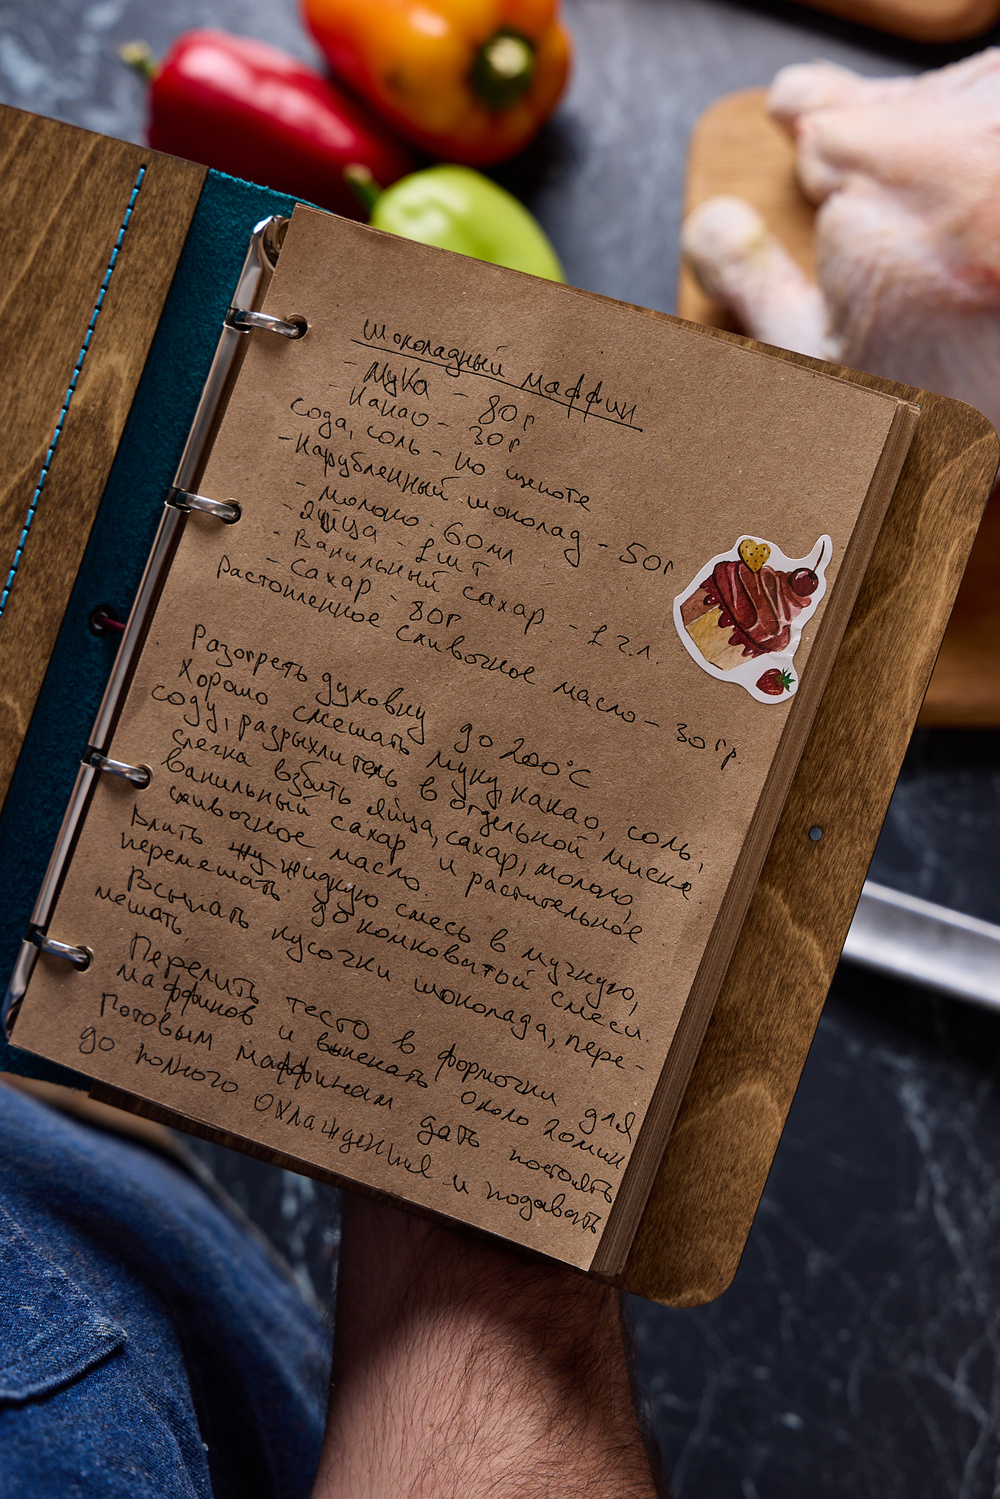 Шоколадный маффин
- Мука - 80г
- Какао - 30г
Сода, соль - по щепоте
- Нарубленный шоколад - 50г
- Молоко - 60мл
- Яйца - 1шт
- Ванильный сахар - 1 г.л.
- Сахар - 80г
Растопленное сливочное масло - 30гр
Разогреть духовку до 200°С
Хорошо смешать муку, какао, соль,
соду, разрыхлитель в отдельной миске
слегка взбить яйца, сахар, молоко
ванильный сахар и растительное
сливочное масло.
Влить жидкую смесь в мучную,
перемешать до комковатой смеси.
Всыпать кусочки шоколада, пере-
мешать
Перелить тесто в формочки для
маффинов и выпекать около 20мин
Готовым маффинам дать постоять
до полного охлаждения и подавать